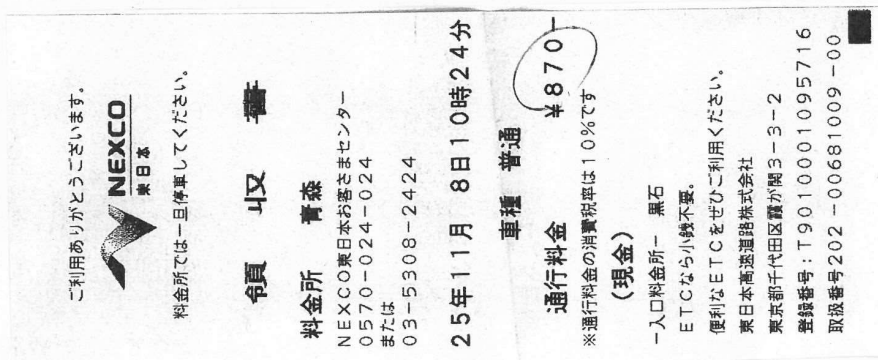 ご利用ありがとうございます。
NEXCO
東日本
料金所では一旦停車してください。
領 収 書
料金所　青森
NEXCO東日本お客さまセンター
0570-024-024
または
03-5308-2424
25年11月 8日10時24分
車種　普通
通行料金　¥870-
※通行料金の消費税率は10%です
(現金)
ー入口料金所ー　黒石
ETCなら小銭不要。
便利なETCをぜひご利用ください。
東日本高速道路株式会社
東京都千代田区霞が関3-3-2
登録番号:T9010001095716
取扱番号202-00681009-00